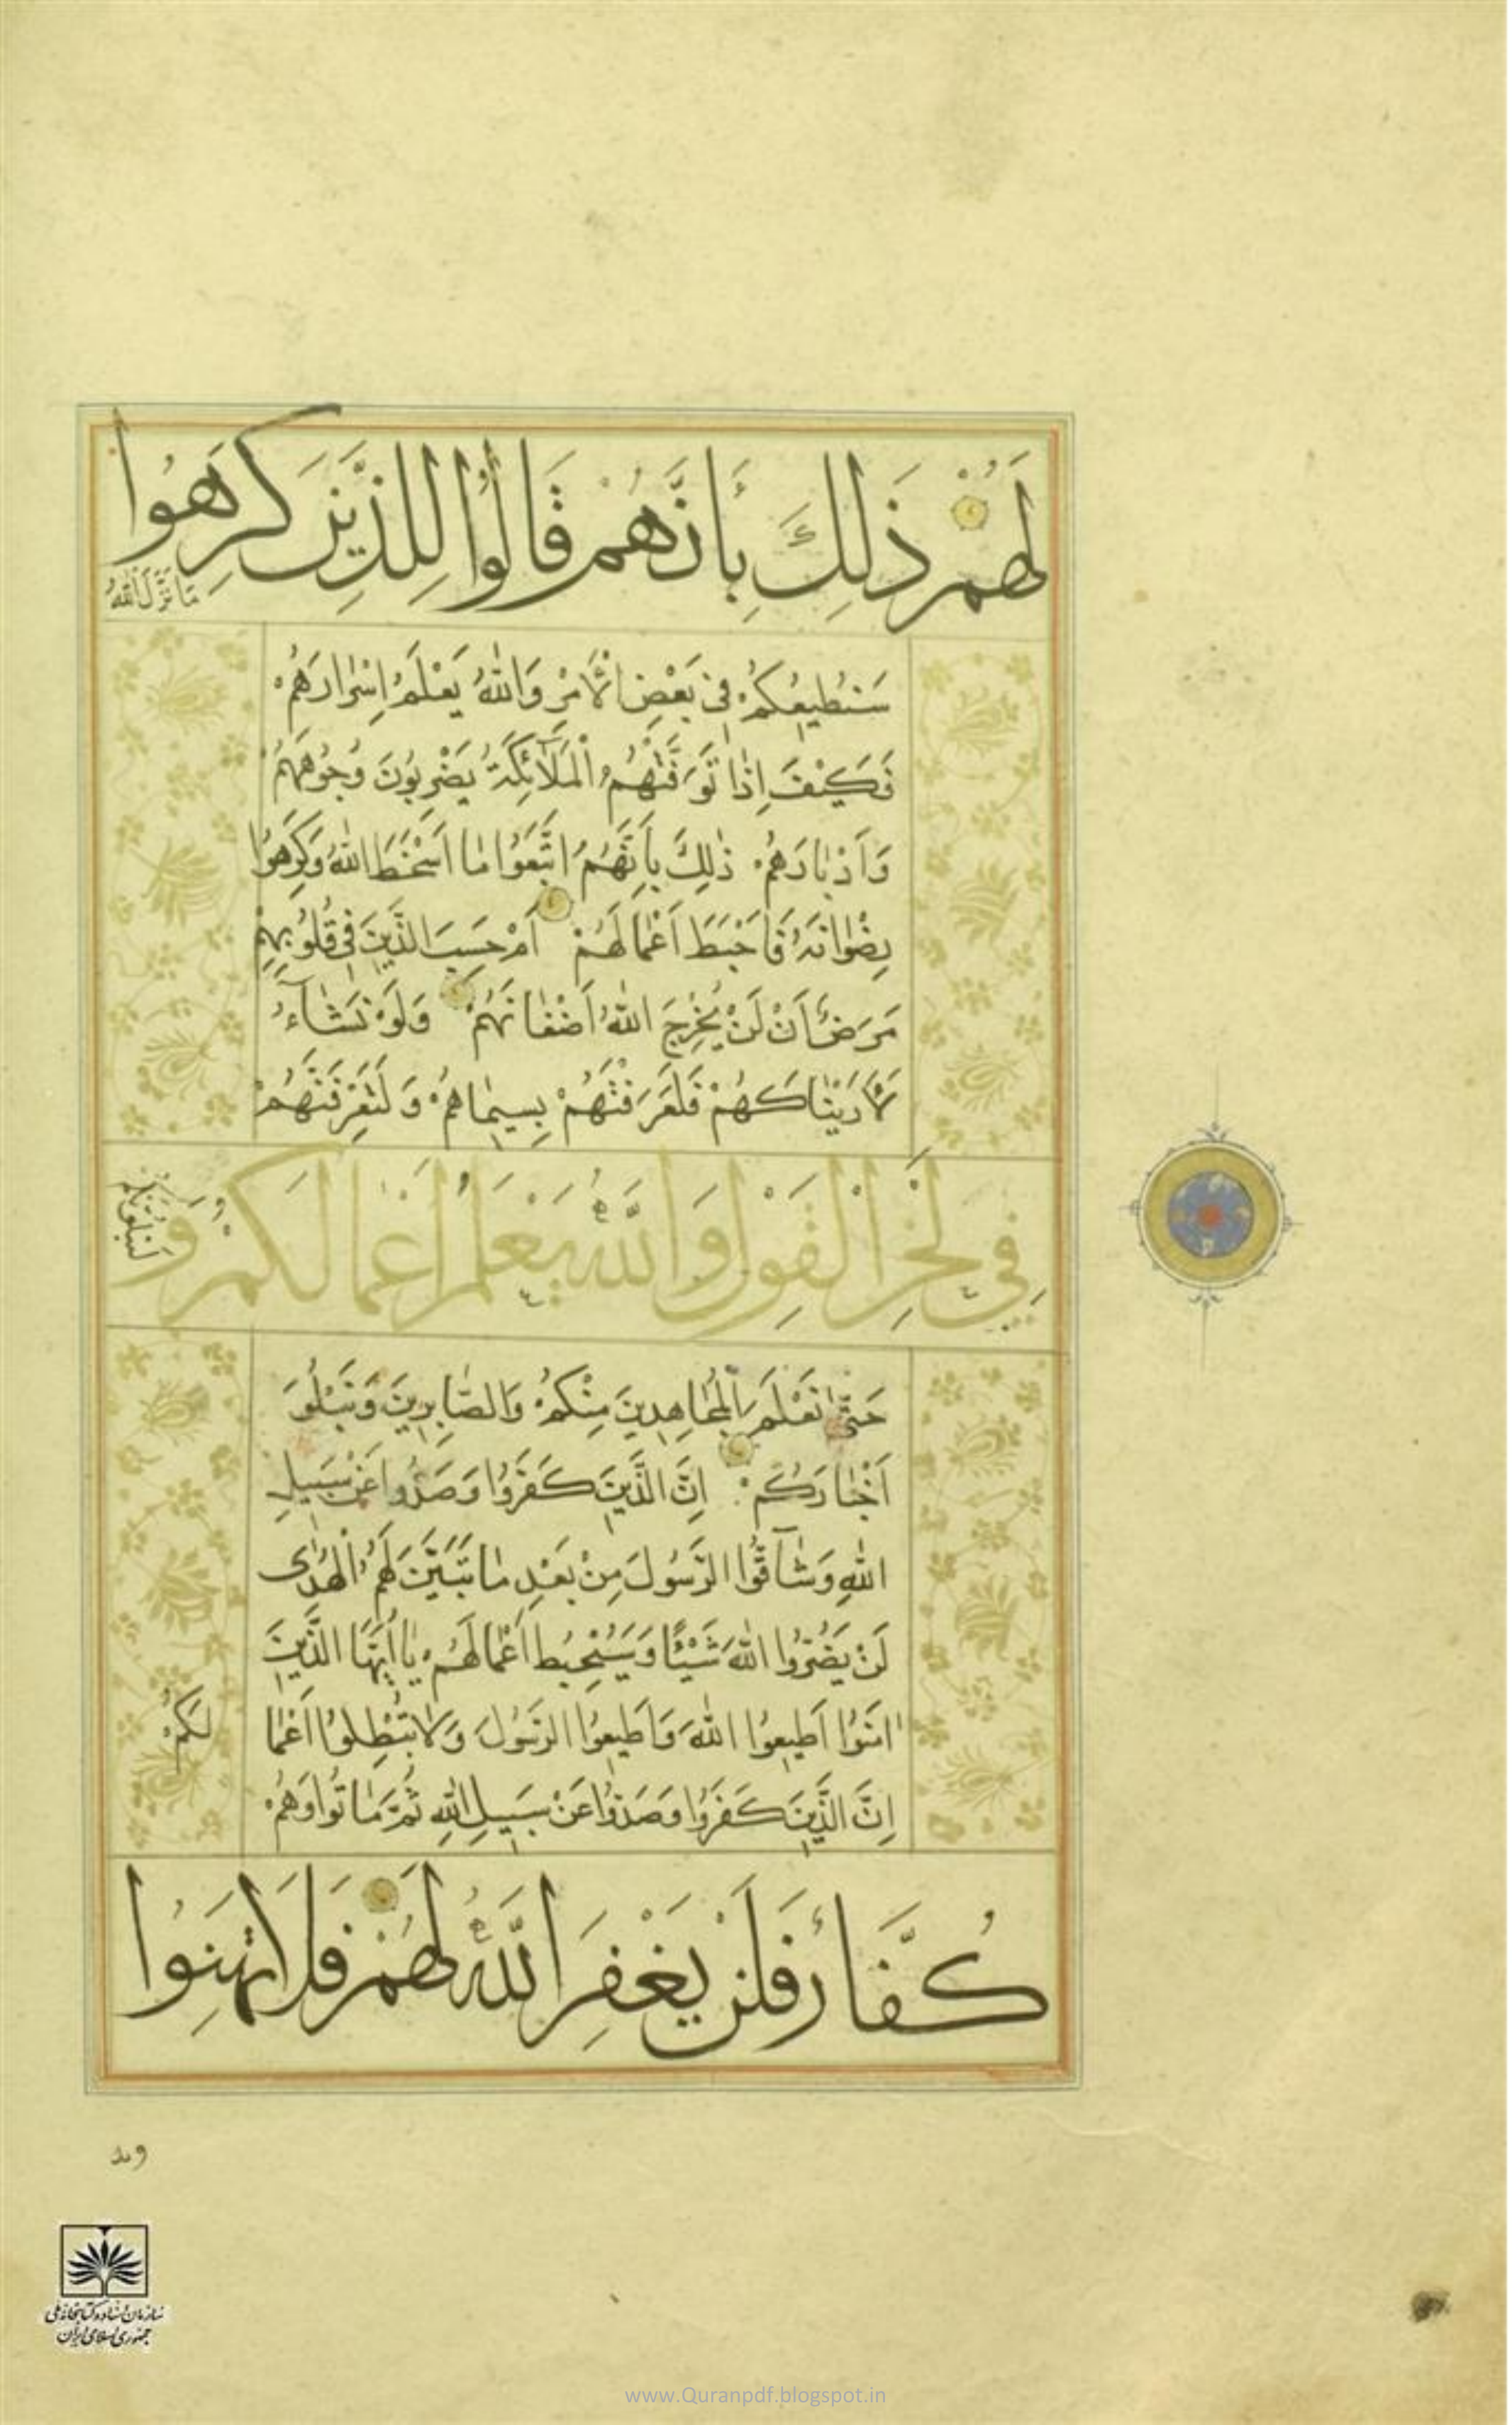 لَهُمْ ذَلِكَ بِأَنَّهُمْ قَالُوا لِلَّذِينَ كَرِهُوا
مَا نَزَّلَ اللّٰهُ
سَنُطِيعُكُمْ فِي بَعْضِ الْأَمْرِ وَاللّٰهُ يَعْلَمُ اِسْرَارَهُمْ
فَكَيْفَ اِذَا تَوَفَّتْهُمُ الْمَلَآئِكَةُ يَضْرِبُونَ وُجُوهَهُمْ
وَاَدْبَارَهُمْ ذٰلِكَ بِأَنَّهُمُ اتَّبَعُوا مَا اَسْخَطَ اللّٰهَ وَكَرِهُوا
رِضْوَانَهُ فَاَحْبَطَ اَعْمَالَهُمْ اَمْ حَسِبَ الَّذِينَ فِي قُلُوبِهِمْ
مَرَضٌ اَنْ لَنْ يُخْرِجَ اللّٰهُ اَضْغَانَهُمْ وَلَوْ نَشَآءُ
لَأَرَيْنَاكَهُمْ فَلَعَرَفْتَهُمْ بِسِيمَاهُمْ وَلَتَعْرِفَنَّهُمْ
فِي لَحْنِ الْقَوْلِ وَاللّٰهُ يَعْلَمُ اَعْمَالَكُمْ وَ
لَنَبْلُوَنَّكُمْ
حَتّٰى نَعْلَمَ الْمُجَاهِدِينَ مِنْكُمْ وَالصَّابِرِينَ وَنَبْلُوَ
اَخْبَارَكُمْ اِنَّ الَّذِينَ كَفَرُوا وَصَدُّوا عَنْ سَبِيلِ
اللّٰهِ وَشَآقُّوا الرَّسُولَ مِنْ بَعْدِ مَا تَبَيَّنَ لَهُمُ الْهُدٰى
لَنْ يَضُرُّوا اللّٰهَ شَيْئًا وَسَيُحْبِطُ اَعْمَالَهُمْ يَا اَيُّهَا الَّذِينَ
اٰمَنُوا اَطِيعُوا اللّٰهَ وَاَطِيعُوا الرَّسُولَ وَلَا تُبْطِلُوا اَعْمَا
لَكُمْ
اِنَّ الَّذِينَ كَفَرُوا وَصَدُّوا عَنْ سَبِيلِ اللّٰهِ ثُمَّ مَاتُوا وَهُمْ
كُفَّارٌ فَلَنْ يَغْفِرَ اللّٰهُ لَهُمْ فَلَا تَهِنُوا
سازمان اسناد و کتابخانه ملی
جمهوری اسلامی ایران
www.Quranpdf.blogspot.in